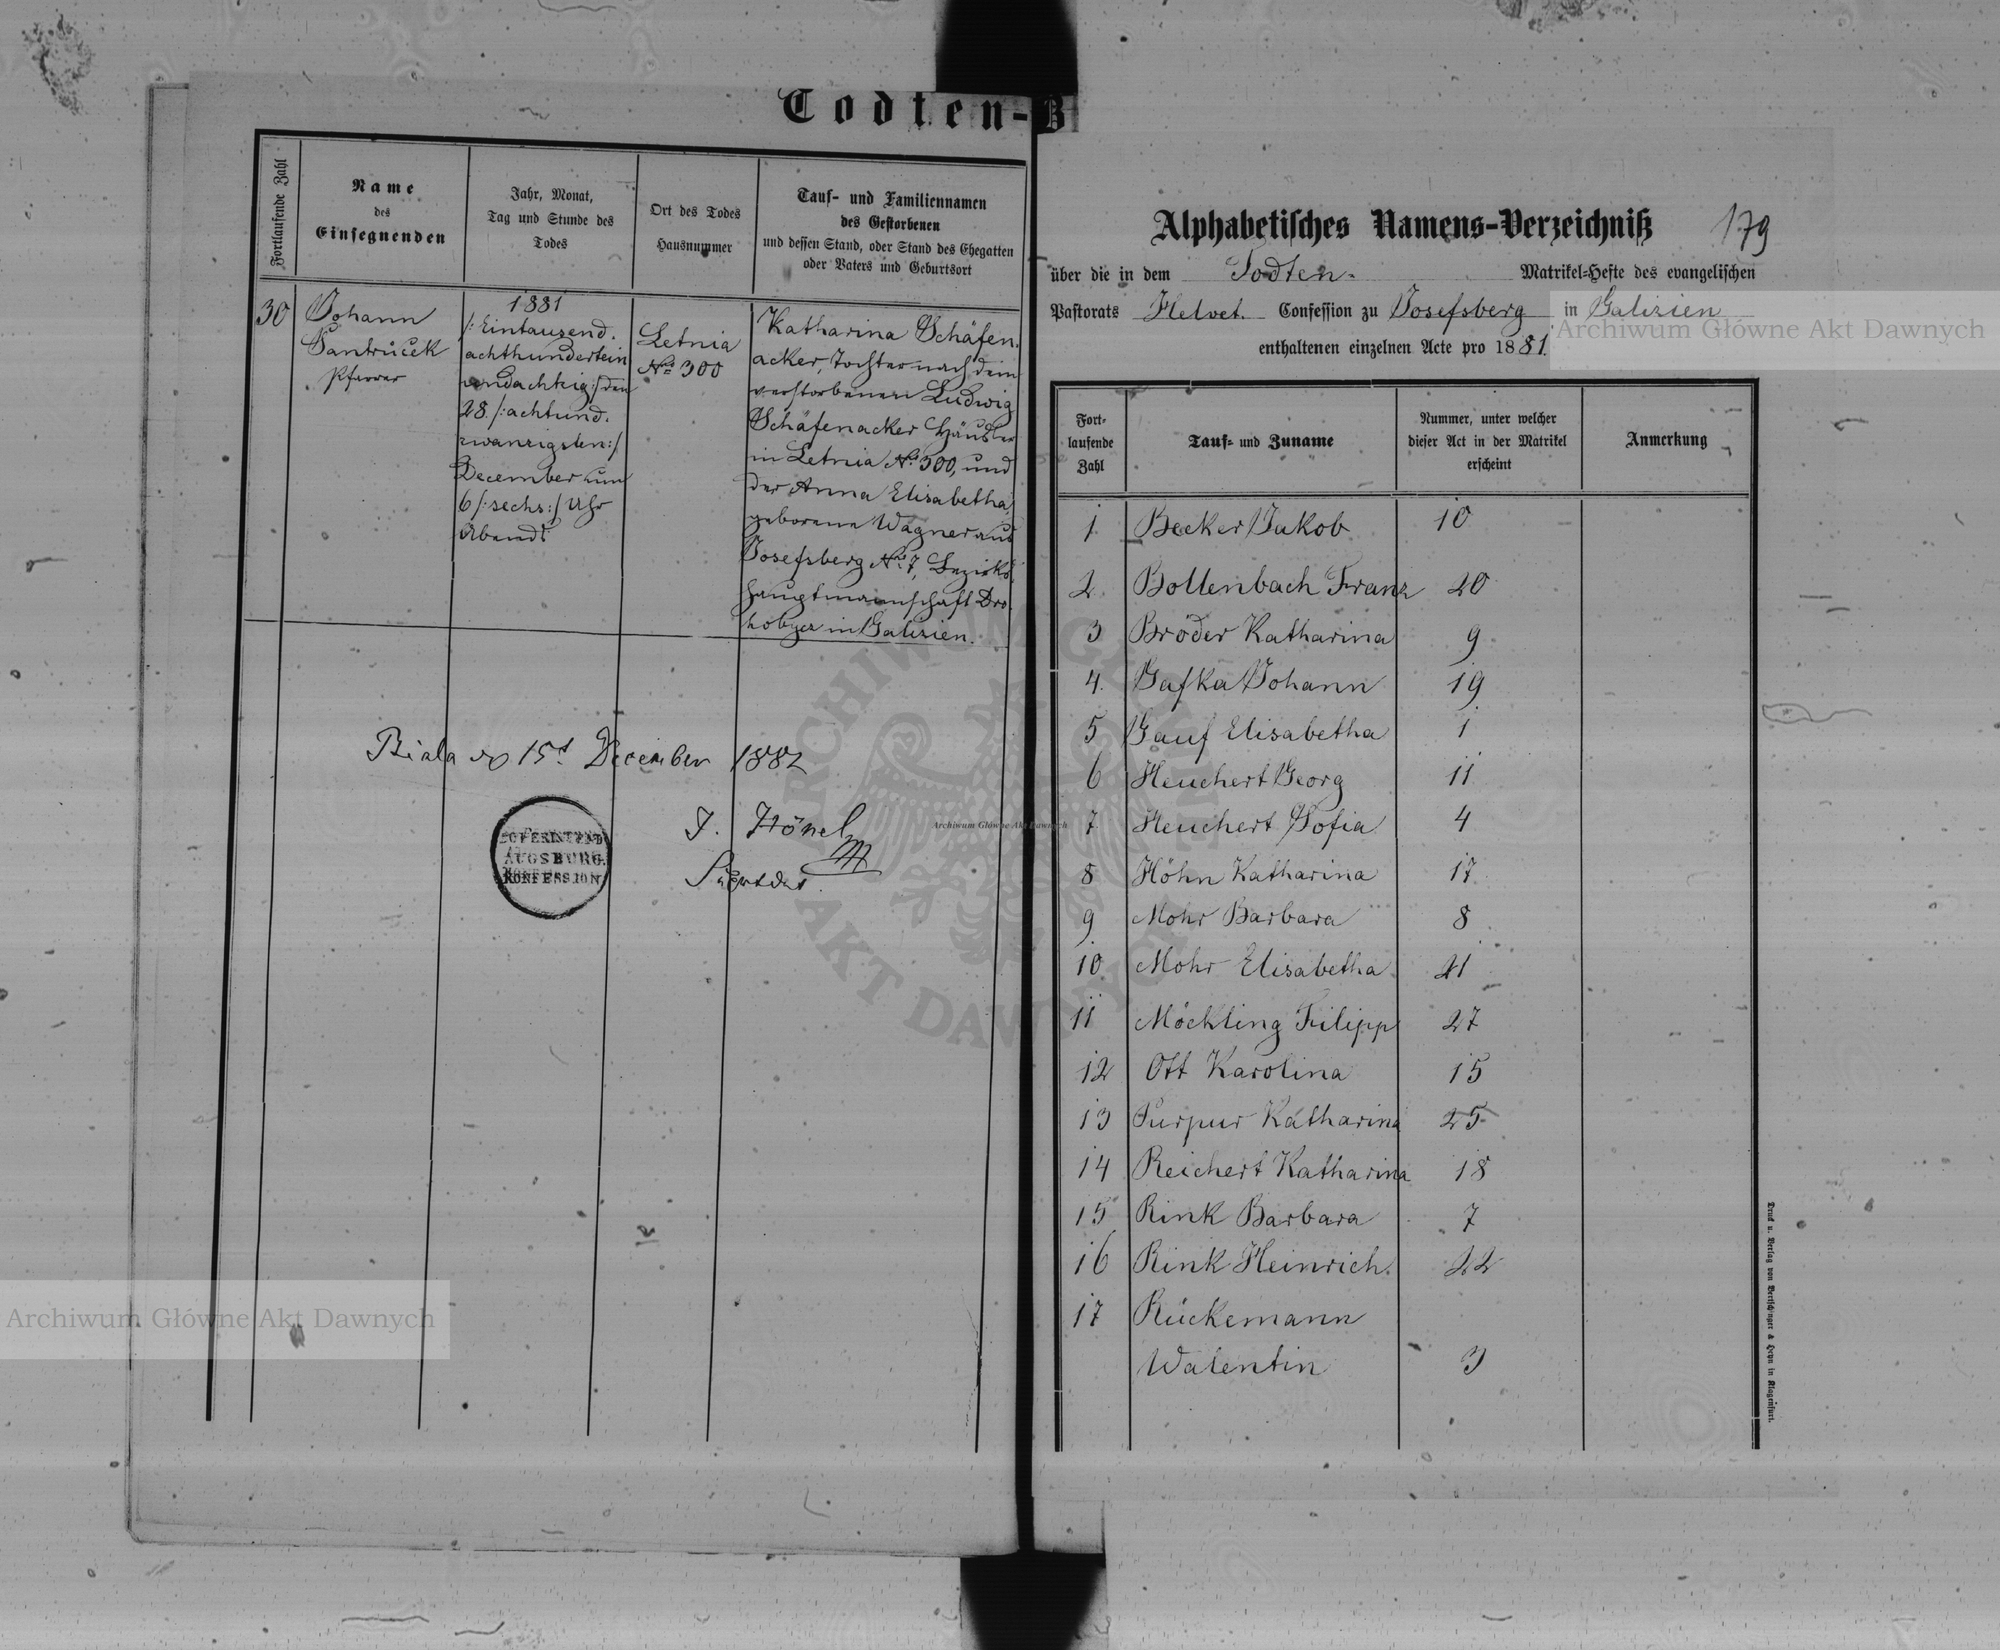 Todten-B
Fortlaufende Zahl
Name
des
Einsegnenden
Jahr, Monat,
Tag und Stunde des
Todes
Ort des Todes
Hausnummer
Tauf- und Familiennamen
des Gestorbenen
und dessen Stand, oder Stand des Ehegatten
oder Vaters und Geburtsort
30
Johann
Santrůček
Pfarrer
1881
/:Eintausend.
achthundertein
undachtzig:/ den
28. /:achtund.
zwanzigsten:/
December um
6 /:sechs:/ Uhr
Abends
Letnia
No 300
Katharina Schäfen.
acker, Tochter nach dem
verstorbenen Ludwig
Schäfenacker Häusler
in Letnia No 300, und
der Anna Elisabetha,
geborene Wagner aus
Josefsberg No 7, Bezirks.
hauptmannschaft Dro.
hobycz in Galizien.
Biala 15t December 1882
J. Hönel
SUPERINTEND
AUGSBURG.
KONFESSION
Alphabetisches Namens-Verzeichniß
179
über die in dem Todten- Matrikel-Hefte des evangelischen
Pastorats Helvet. Confession zu Josefsberg in Galizien
enthaltenen einzelnen Acte pro 1881.
Fort-
laufende
Zahl
Tauf- und Zuname
Nummer, unter welcher
dieser Act in der Matrikel
erscheint
Anmerkung
1. Becker Jakob 10
2. Bollenbach Franz 20
3 Bröder Katharina 9
4. Gafka Johann 19
5 Gauf Elisabetha 1
6 Heuchert Georg 11
7 Heuchert Sofia 4
8 Höhn Katharina 17
9 Mohr Barbara 8
10 Mohr Elisabetha 21
11 Möckling Filipp 27
12 Ott Karolina 15
13 Purpur Katharina 25
14 Reichert Katharina 18
15 Rink Barbara 7
16 Rink Heinrich 22
17 Rückemann
Walentin 3
Druck u. Verlag von Bertschinger & Heyn in Klagenfurt.
Archiwum Główne Akt Dawnych
Archiwum Główne Akt Dawnych
Archiwum Główne Akt Dawnych
ARCHIWUM GŁÓWNE
AKT DAWNYCH